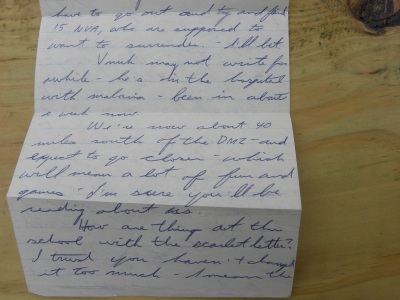 have to go out and try and find
15 NVA, who are supposed to
want to surrender. - I'll bet
Vmuk may not write for
awhile - he's in the hospital
with malaria - been in about
a week now.
We're now about 40
miles south of the DMZ - and
expect to go closer - which
will mean a lot of fun and
games - I'm sure you'll be
reading about us.
How are things at the
school with the scarlet letter?
I trust you haven't changed
it too much - someone the